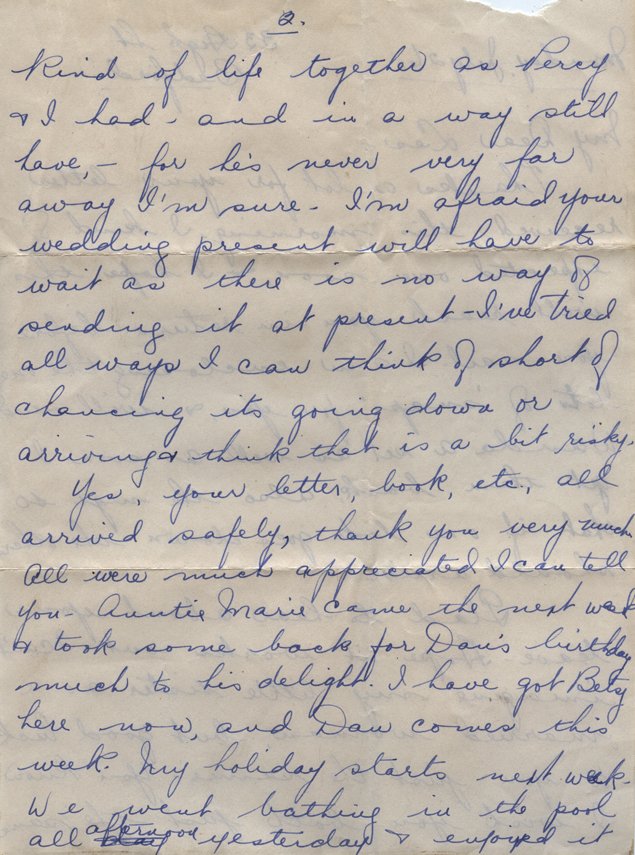 2.
kind of life together as Percy
& I had - and in a way still
have, - for he's never very far
away I'm sure - I'm afraid your
wedding present will have to
wait as there is no way of
sending it at present - I've tried
all ways I can think of short of
chancing its going down or
arriving & think that is a bit risky.
Yes, your letter, book, etc., all
arrived safely, thank you very much.
All were much appreciated I can tell
you - Auntie Marie came the next week
& took some back for Dan's birthday
much to his delight. I have got Betsy
here now, and Dan comes this
week. My holiday starts next week.
We went bathing in the pool
all afternoon yesterday & enjoyed it